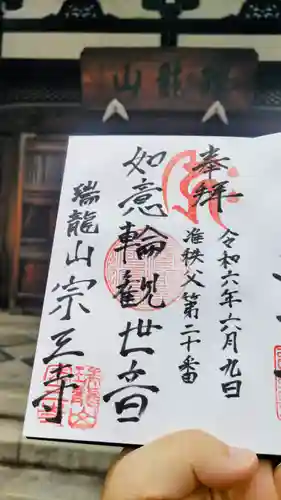 瑞龍山
奉拝
令和六年六月九日
准秩父第二十番
如意輪観世音
瑞龍山宗三寺